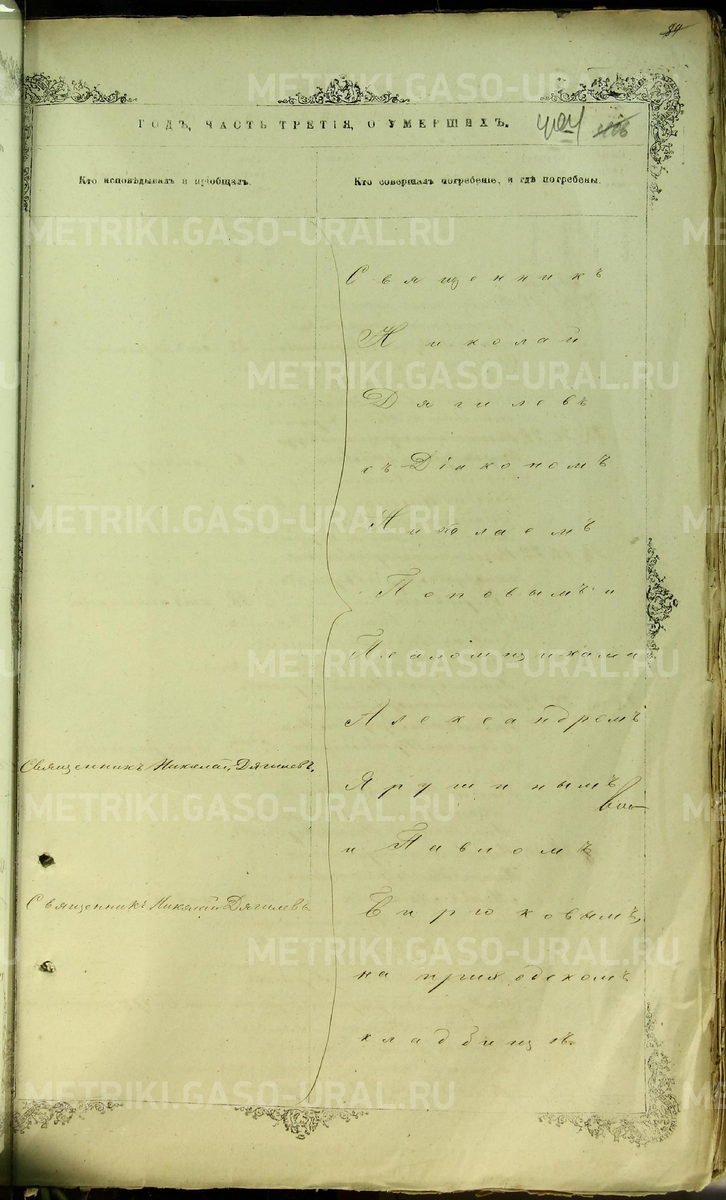 84
ГОДЪ, ЧАСТЬ ТРЕТІЯ, О УМЕРШИХЪ.
Кто исповѣдывалъ и пріобщалъ.
Кто совершалъ погребеніе, и гдѣ погребены.
Священникъ Николай Дягилевъ.
Священникъ Николай Дягилевъ
Священникъ
Николай
Дягилевъ
съ Діакономъ
Николаемъ
Поповымъ и
Псаломщиками
Александромъ
Ярушинымъ
и Павломъ
Бирюковымъ,
на приходскомъ
кладбищѣ.
METRIKI.GASO-URAL.RU